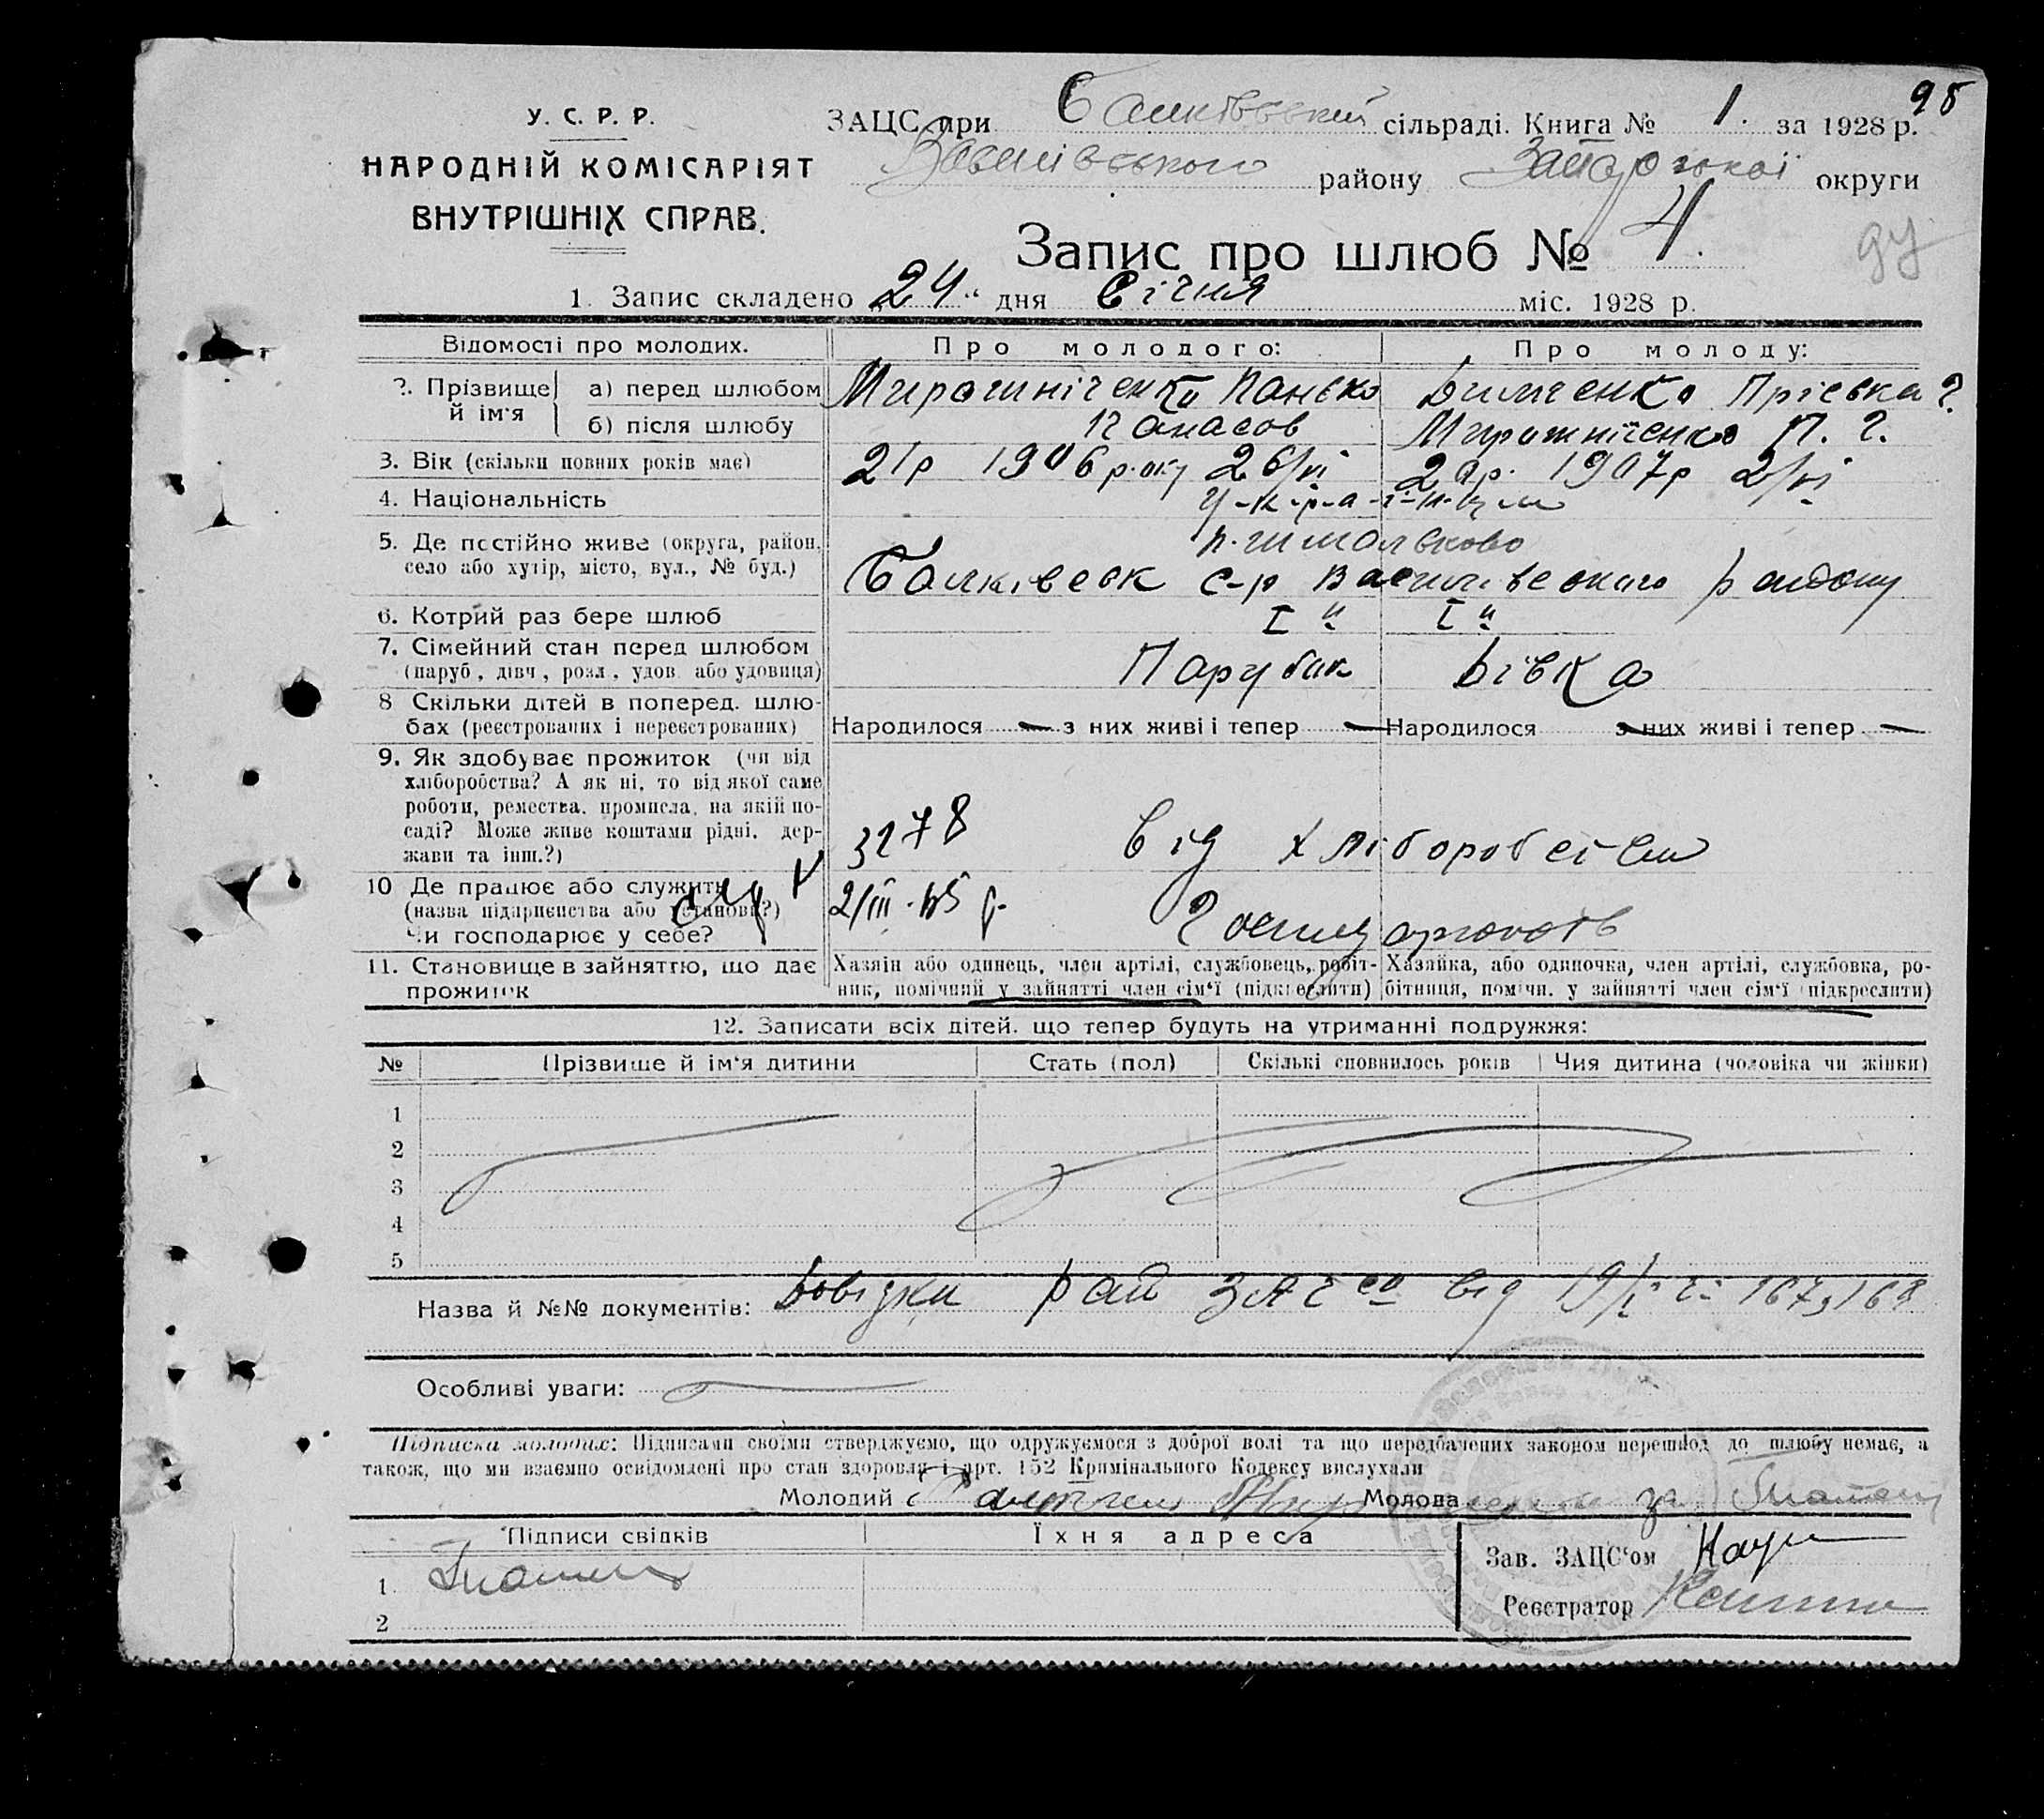 98
У. С. Р. Р.
НАРОДНІЙ КОМІСАРІЯТ
ВНУТРІШНІХ СПРАВ.
ЗАЦС при Балківській сільраді. Книга № 1. за 1928 р.
Василівського району Запорізької округи
Запис про шлюб № 4.
1. Запис складено 24 " дня Січня міс. 1928 р.
Відомості про молодих. Про молодого: Про молоду:
2. Прізвище й ім'я а) перед шлюбом Мирошніченко Панько
Панасов
б) після шлюбу Мирошніченко П. Г.
3. Вік (скільки повних років має) 21р 1906 року 26/VI 20р. 1907р 2/VI
4. Національність у-к-р-а-ї-н-ц-и
5. Де постійно живе (округа, район, село або хутір, місто, вул., № буд.)
Балківськ с-р Василівського району
6. Котрий раз бере шлюб I й I й
7. Сімейний стан перед шлюбом (паруб., дівч., розл., удов. або удовиця) Парубок Дівка
8 Скільки дітей в поперед. шлюбах (реєстрованих і нереєстрованих) Народилося — з них живі і тепер — Народилося — з них живі і тепер —
9. Як здобуває прожиток (чи від хліборобства? А як ні, то від якої саме роботи, ремества, промисла, на якій посаді? Може живе коштами рідні, держави та інш.?)
3278 Від хліборобства
10 Де працює або служить (назва підприємства або установи?) Чи господарює у себе?
2/III-45 р.
11. Становище в зайняттю, що дає прожиток
Хазяїн або одинець, член артілі, службовець, робітник, помічний у зайнятті член сім'ї (підкреслити)
Хазяйка, або одиночка, член артілі, службовка, робітниця, помічн. у зайнятті член сім'ї (підкреслити)
12. Записати всіх дітей, що тепер будуть на утриманні подружжя:
№ Прізвище й ім'я дитини Стать (пол) Скількі сповнилось років Чия дитина (чоловіка чи жінки)
1
2
3
4
5
Назва й №№ документів: Довідки рай ЗАГСа від 19/I 167, 168
Особливі уваги:
Підписка молодих: Підписами своїми стверджуємо, що одружуємося з доброї волі та що передбачених законом перешкод до шлюбу немає, а
також, що ми взаємно освідомлені про стан здоровля і арт. 152 Кримінального Кодексу вислухали
Молодий Молода за
Підписи свідків Їхня адреса
Зав. ЗАЦС'ом
1.
Реєстратор
2